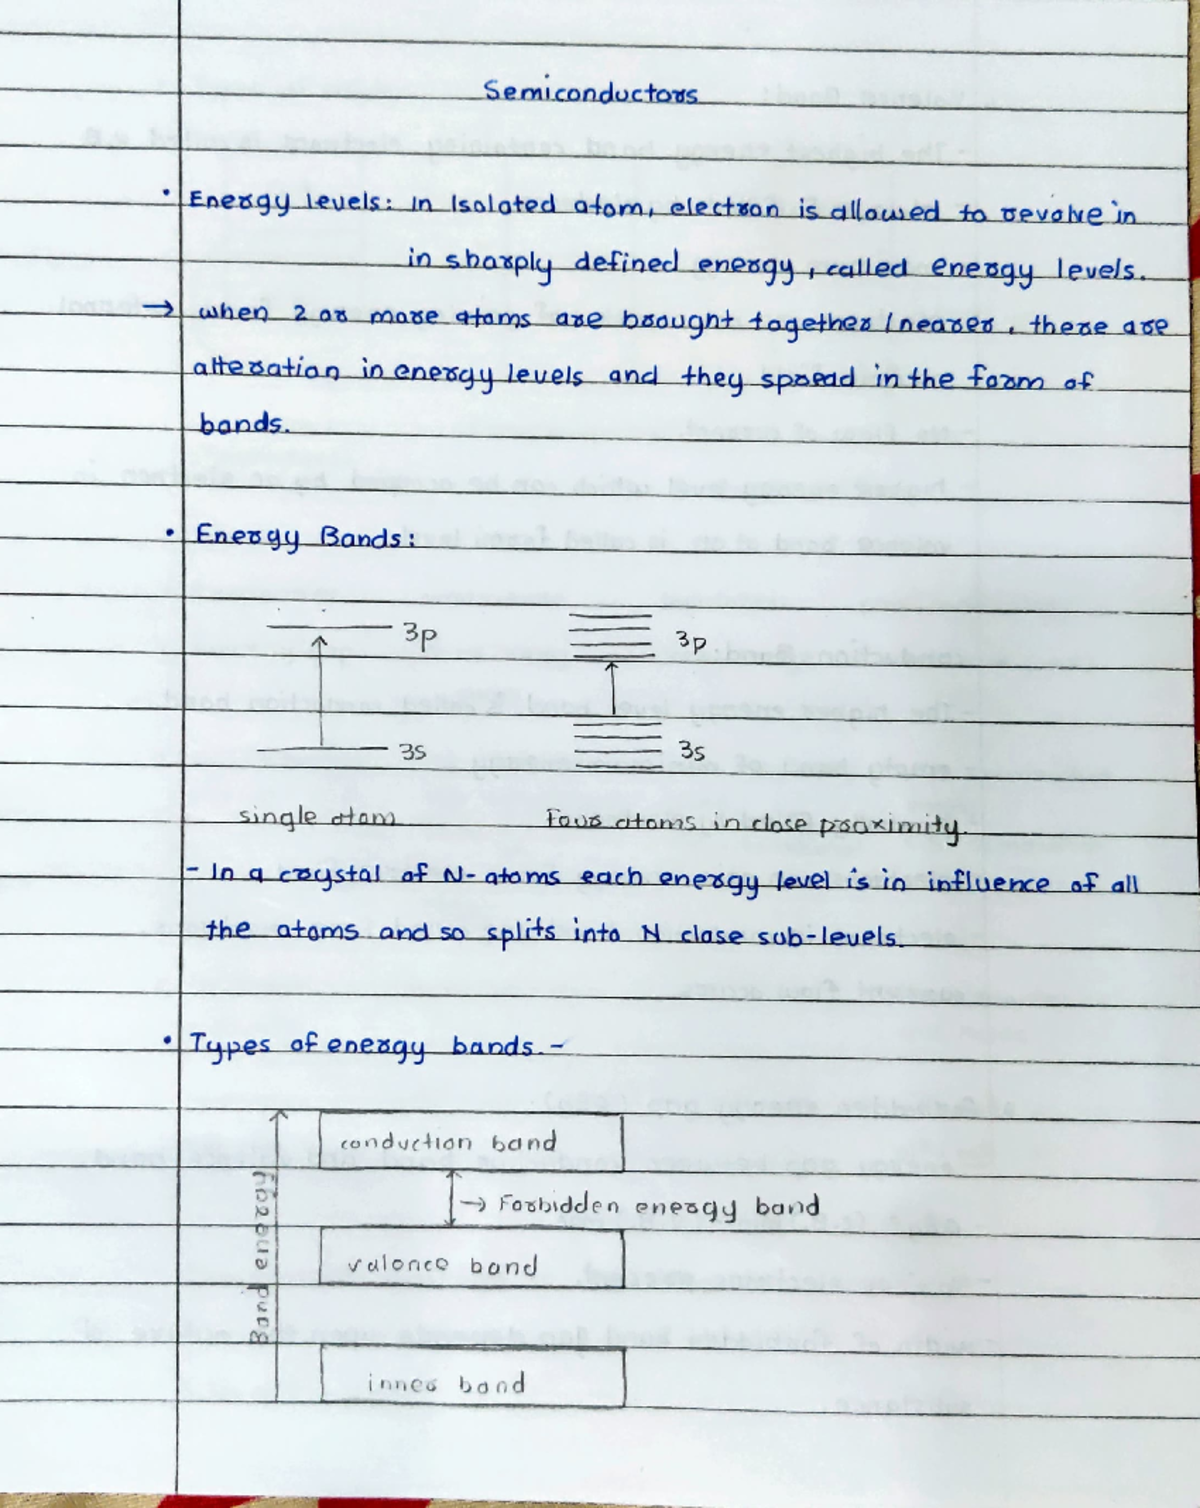 Semiconductors
• Energy levels: in Isolated atom, electron is allowed to revolve in
in sharply defined energy, called energy levels.
→ when 2 or more atoms are brought together / nearer, there are
alteration in energy levels and they spread in the form of
bands.
• Energy Bands:
3p 3p
3s 3s
single atom Four atoms in close proximity.
- In a crystal of N-atoms each energy level is in influence of all
the atoms and so splits into N close sub-levels.
• Types of energy bands.-
conduction band
→ Forbidden energy band
Band energy
valence band
inner band